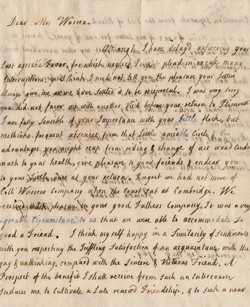 Dear Mrs Warren
Altho' I have delayd answering your
last agreable Favor, for which neglect I might plead in excuse many
Interruptions, yet I think I need not tell you the pleasure your Letters
always give me, as we have settled it to be reciprocal. I was very sorry
you did not favor me with another Visit before your return to Plimouth
I am fully sensible of your Importance with your little flock, but
methinks frequent absences from that little amiable Circle
advantages you might reap from riding & change of air would conduce
much to your health, give pleasure to your friends & endear you
to your little ones at your return. Regret we had not more of
Coll Warrens Company when the Court sat at Cambridge. We
received much pleasure in your good Fathers Company, it was a very
agreable Circumstance to us that we were able to accommodate so
good a Friend. I think myself happy in a Similarity of sentiments
with you respecting the Trifling Satisfaction of an acquaintance with the
gay & unthinking, compared with the Sincere & Virtuous Friend. A
Prospect of the benefit I shall receive from such an Intercourse
induces me to cultivate a Late renewd Friendship, & to such a name